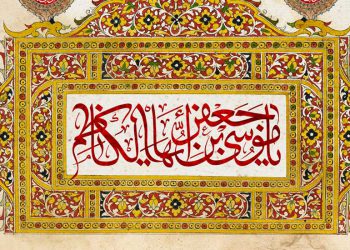 يا موسى بن جعفر أيها الكاظم